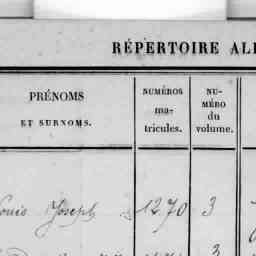 RÉPERTOIRE AL
PRÉNOMS
ET SURNOMS.
NUMÉROS
ma-
tricules.
NU-
MÉRO
du
volume.
Louis Joseph 1270 3
3